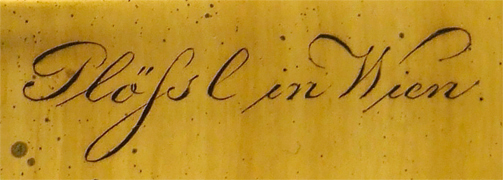 Plößl in Wien.